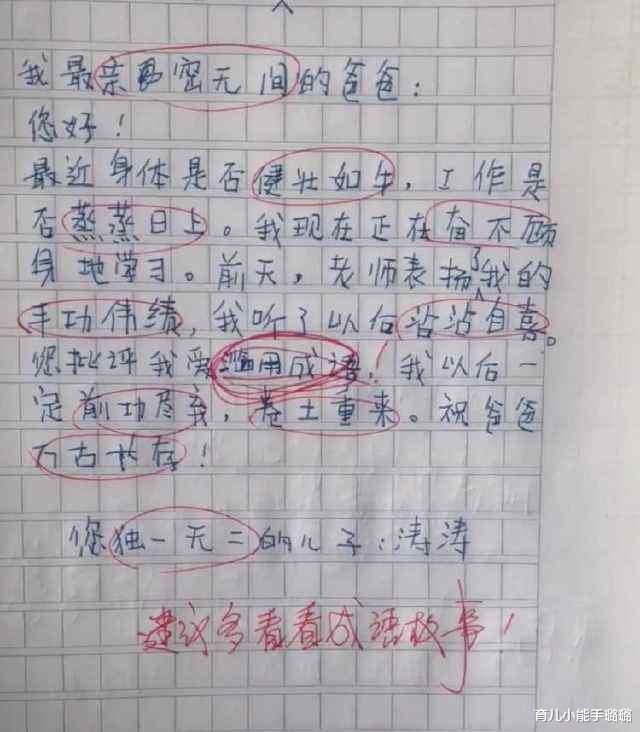 我最亲密无间的爸爸：
您好！
最近身体是否健壮如牛，工作是
否蒸蒸日上。我现在正在奋不顾
身地学习。前天，老师表扬了我的
丰功伟绩，我听了以后沾沾自喜。
您批评我爱滥用成语，我以后一
定前功尽弃，卷土重来。祝爸爸
万古长存！
您独一无二的儿子：涛涛
建议多看看成语故事！
育儿小能手璐璐